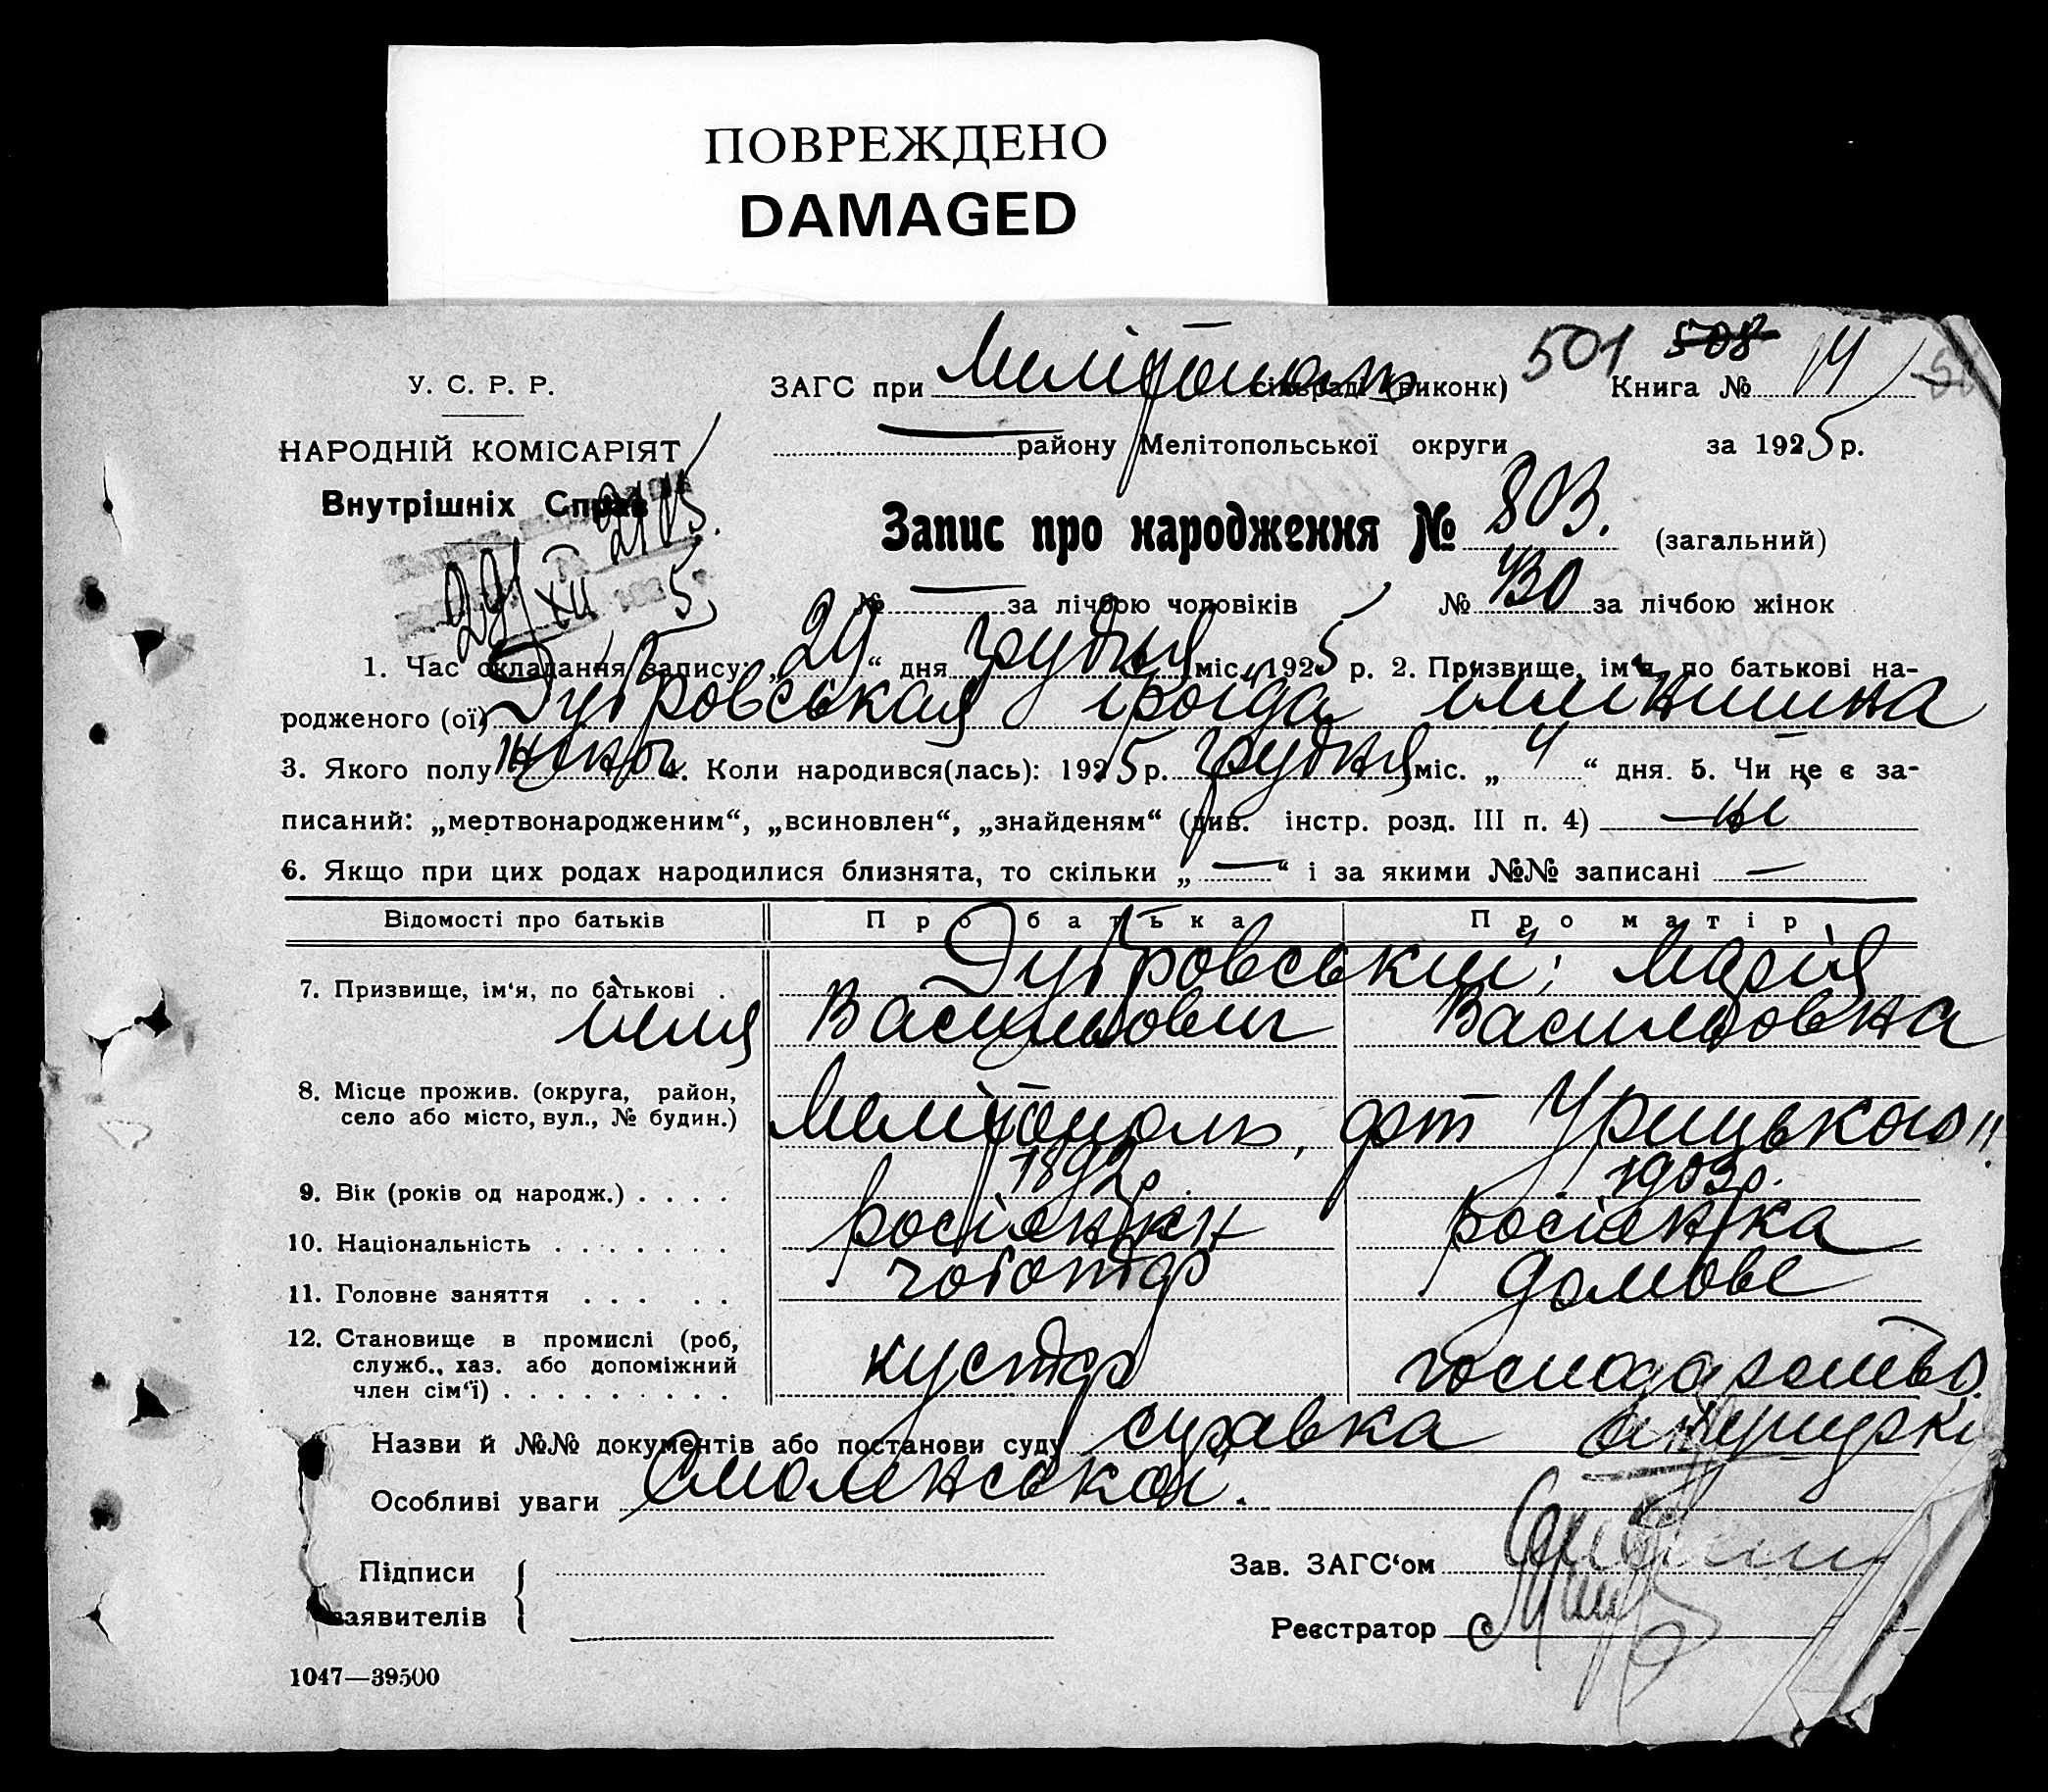 ПОВРЕЖДЕНО
DAMAGED
501 508
У. С. Р. Р. ЗАГС при Мелітополь сільраді (виконк) Книга № 14
НАРОДНІЙ КОМІСАРІЯТ району Мелітопольської округи за 1925 р.
Внутрішніх Справ
Запис про народження № 803. (загальний)
29/XII 5
№ — за лічбою чоловіків № 430 за лічбою жінок
1. Час складання запису: „29“ дня грудня міс. 1925 р. 2. Призвище, ім'я, по батькові на-
родженого (ої) Дубровськая Іроїда Іллінишна
3. Якого полу жіноч. 4. Коли народився(лась): 1925 р. грудня міс. „4“ дня. 5. Чи не є за-
писаний: „мертвонародженим“, „всиновлен“, „знайденям“ (див. інстр. розд. III п. 4) не
6. Якщо при цих родах народилися близнята, то скільки „—“ і за якими №№ записані —
Відомості про батьків Про батька Про матір
7. Призвище, ім'я, по батькові . Дубровський; Марія
Ілля Васильович Васильовна
8. Місце прожив. (округа, район,
село або місто, вул., № будин.) Мелітополь, Урицького 11
9. Вік (років од народж.) . . . . 1892р. 1903р.
10. Національність . . . . . . . росіянин росіянка
11. Головне заняття . . . . . чоботар домове
12. Становище в промислі (роб,
служб., хаз. або допоміжний
член сім'ї) . . . . . . . . . кустар господарство
Назви й №№ документів або постанови суду справка акушерки
Особливі уваги Смоленськой.
Підписи
заявителів
Зав. ЗАГС'ом
Реєстратор
1047—39500